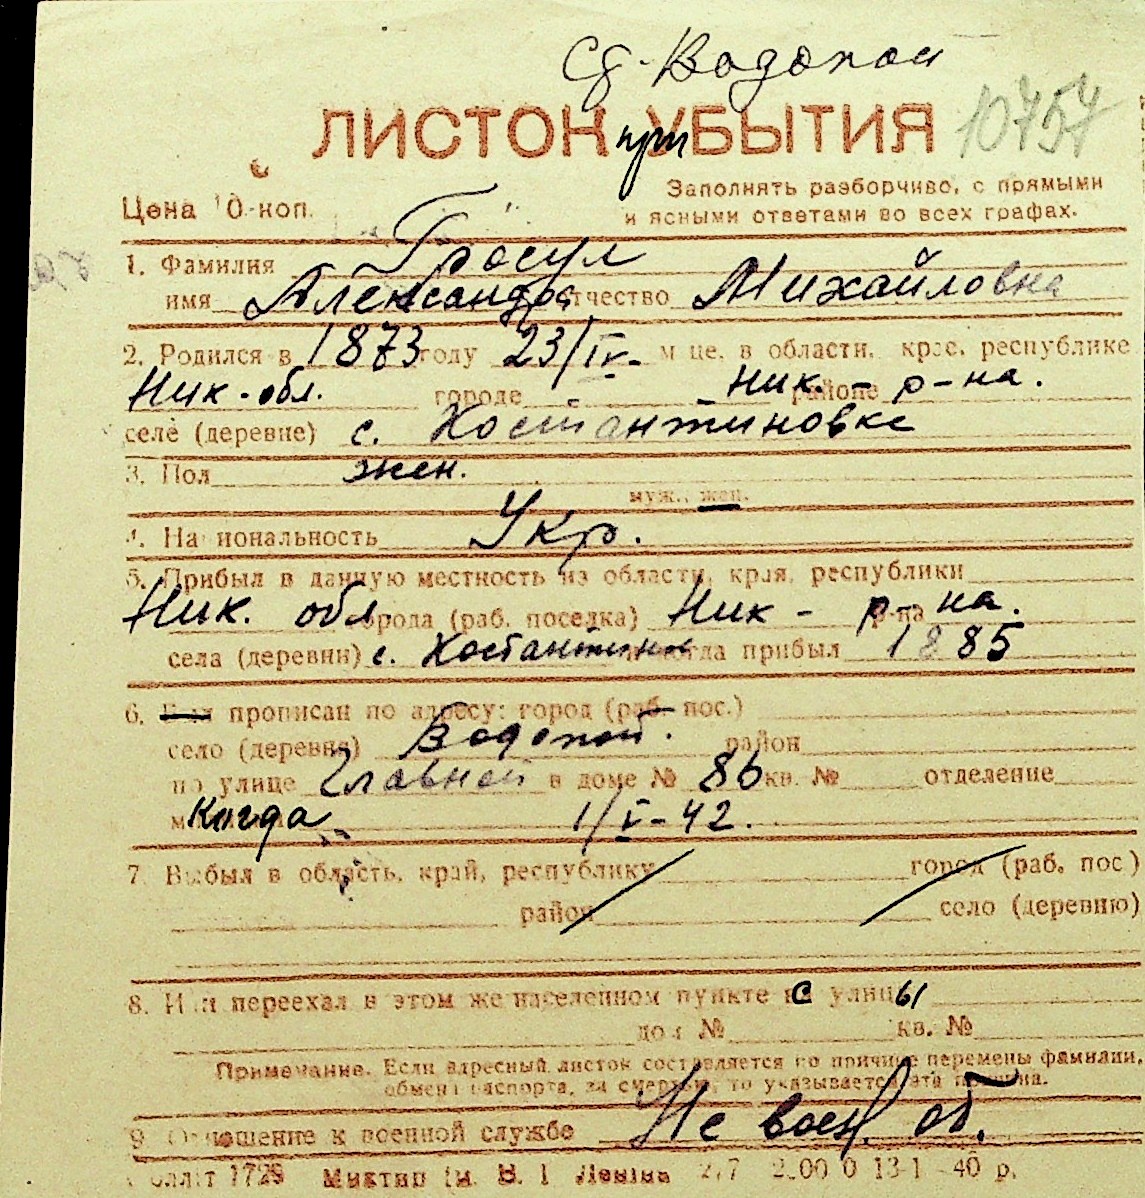 Сд. Водопой
ЛИСТОК при УБЫТИЯ 10757
Цена 10 коп.
Заполнять разборчиво, с прямыми
и ясными ответами во всех графах.
1. Фамилия Гросул
имя Александра отчество Михайловна
2. Родился в 1873 году 23/IV- м це, в области, крае, республике
Ник-обл. городе Ник. - районе р-на.
селе (деревне) с. Костантиновке
3. Пол жен.
муж., жен.
4. Национальность Укр.
5. Прибыл в данную местность из области, края, республики
Ник. обл города (раб. поселка) Ник - р-на.
села (деревни) с. Костантин когда прибыл 1885
6. Был прописан по адресу: город (раб. пос.)
село (деревня) Водопой. район
по улице Главной в доме № 86 кв. № отделение
Когда 1/V-42.
7 Выбыл в область, край, республику город (раб. пос)
район село (деревню)
8. Или переехал в этом же населенном пункте с улицы
дом № кв. №
Примечание. Если адресный листок составляется по причине перемены фамилии,
обмена паспорта, за смертью, то указывается эта причина.
9 Отношение к военной службе Не воен. об.
1729 В. Ленина 40 р.